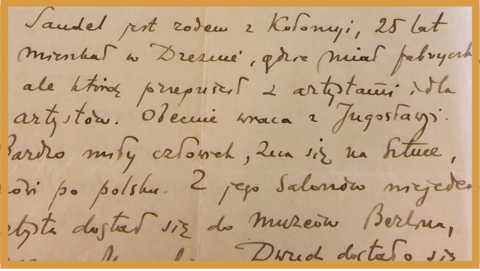 Sandel jest rodem z Kołomyi, 25 lat
mieszkał w Dreźnie, gdzie miał fabrycz
ale którą przepuścił z artystami i dla
artystów. Obecnie wraca z Jugosławji.
Bardzo miły człowiek, zna się na sztuce,
ówi po polsku. Z jego salonów niejeden
rtysta dostał się do muzeów Berlina,
Dwuch dostało się